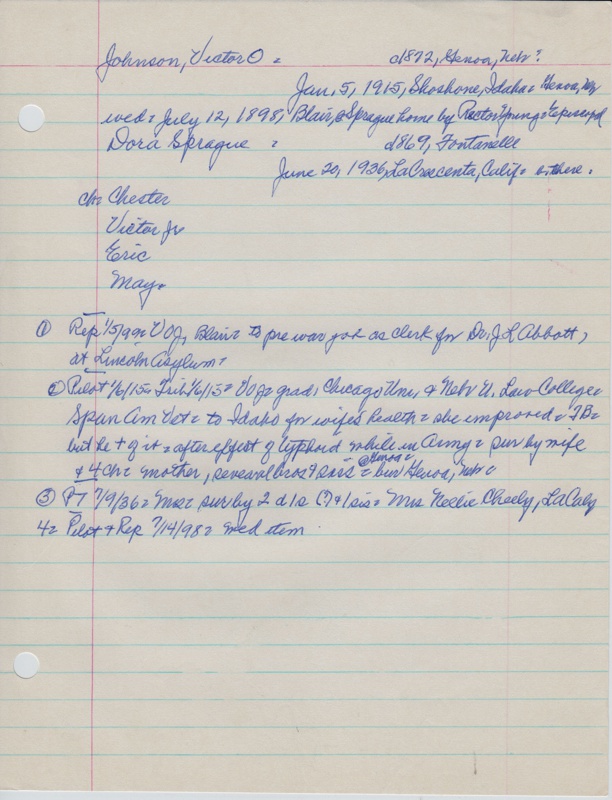 Johnson, Victor O = d872, Genoa, Neb?
Jan, 5, 1915, Shoshone, Idaho = Genoa,
wed = July 12, 1898, Blair, @ Sprague home by Rector Young = Episcopal
Dora Sprague = d869, Fontanelle
June 20, 1936, LaCrescenta, Calif = there.
ch = Chester
Victor Jr
Eric
May.
① Rep 1/5/99 = VOJ, Blair = to pre war job as clerk for Dr. J L Abbott,
at Lincoln Asylum =
② Pilot 1/6/15 = Trib 1/6/15 = VOJ = grad, Chicago Uni, & Neb U. Law College =
Span Am Vet = to Idaho for wife's health = she improved = TB =
but he + of it = after effect of typhoid while in Army = sur by wife
& 4 ch = mother, several bros & sis = @ Genoa = bur Genoa, Neb =
③ PT 7/9/36 = Mrs = sur by 2 d 1 s (?) & 1 sis = Mrs Nellie Cheely, La
4 = Pilot & Rep 7/14/98 = wed item